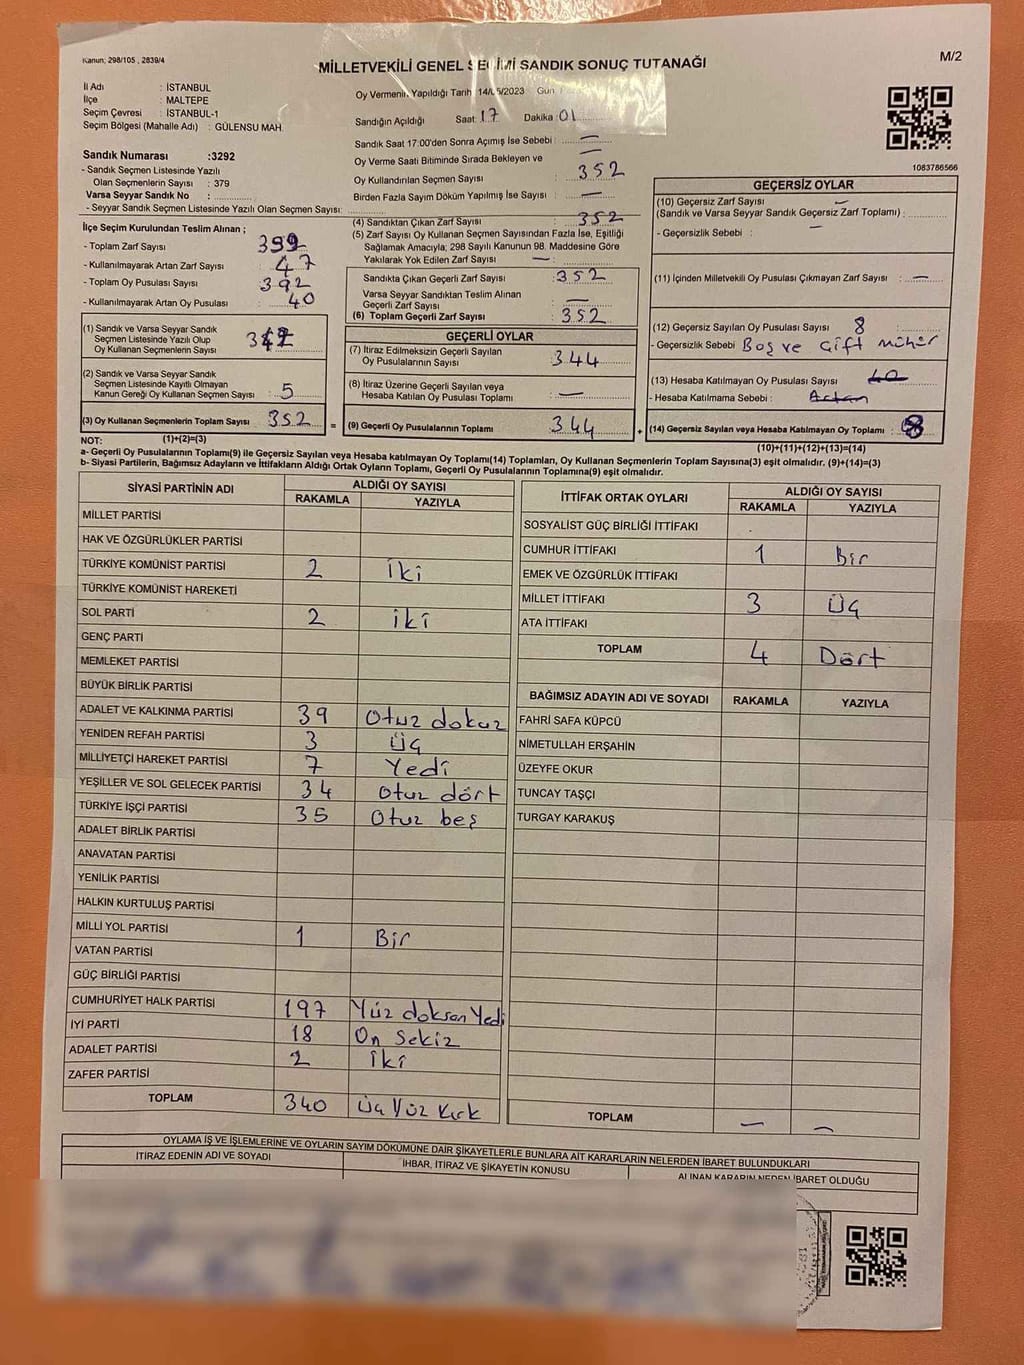 Kanun; 298/105 , 2839/4
M/2
MİLLETVEKİLİ GENEL SEÇİMİ SANDIK SONUÇ TUTANAĞI
İl Adı : İSTANBUL
İlçe : MALTEPE
Seçim Çevresi : İSTANBUL-1
Seçim Bölgesi (Mahalle Adı) : GÜLENSU MAH.
Oy Vermenin Yapıldığı Tarih 14/05/2023 Gün
Sandığın Açıldığı Saat: 17 Dakika: 01
Sandık Saat 17:00'den Sonra Açımış İse Sebebi : —
Oy Verme Saati Bitiminde Sırada Bekleyen ve
Oy Kullandırılan Seçmen Sayısı : 352
Birden Fazla Sayım Döküm Yapılmış İse Sayısı : —
1083786566
Sandık Numarası :3292
- Sandık Seçmen Listesinde Yazılı
Olan Seçmenlerin Sayısı : 379
Varsa Seyyar Sandık No :
- Seyyar Sandık Seçmen Listesinde Yazılı Olan Seçmen Sayısı:
İlçe Seçim Kurulundan Teslim Alınan ;
- Toplam Zarf Sayısı : 399
- Kullanılmayarak Artan Zarf Sayısı : 47
- Toplam Oy Pusulası Sayısı : 392
- Kullanılmayarak Artan Oy Pusulası : 40
(1) Sandık ve Varsa Seyyar Sandık
Seçmen Listesinde Yazılı Olup
Oy Kullanan Seçmenlerin Sayısı :
(2) Sandık ve Varsa Seyyar Sandık
Seçmen Listesinde Kayıtlı Olmayan
Kanun Gereği Oy Kullanan Seçmen Sayısı : 5
(3) Oy Kullanan Seçmenlerin Toplam Sayısı : 352 =
(4) Sandıktan Çıkan Zarf Sayısı : 352
(5) Zarf Sayısı Oy Kullanan Seçmen Sayısından Fazla İse, Eşitliği
Sağlamak Amacıyla; 298 Sayılı Kanunun 98. Maddesine Göre
Yakılarak Yok Edilen Zarf Sayısı — :
Sandıkta Çıkan Geçerli Zarf Sayısı : 352
Varsa Seyyar Sandıktan Teslim Alınan
Geçerli Zarf Sayısı : —
(6) Toplam Geçerli Zarf Sayısı : 352
GEÇERLİ OYLAR
(7) İtiraz Edilmeksizin Geçerli Sayılan
Oy Pusulalarının Sayısı : 344
(8) İtiraz Üzerine Geçerli Sayılan veya
Hesaba Katılan Oy Pusulası Toplamı : —
(9) Geçerli Oy Pusulalarının Toplamı : 344 +
GEÇERSİZ OYLAR
(10) Geçersiz Zarf Sayısı —
(Sandık ve Varsa Seyyar Sandık Geçersiz Zarf Toplamı) :
- Geçersizlik Sebebi : —
(11) İçinden Milletvekili Oy Pusulası Çıkmayan Zarf Sayısı : —
(12) Geçersiz Sayılan Oy Pusulası Sayısı : 8
- Geçersizlik Sebebi Boş ve Çift mühür
(13) Hesaba Katılmayan Oy Pusulası Sayısı : 40
- Hesaba Katılmama Sebebi : Artan
(14) Geçersiz Sayılan veya Hesaba Katılmayan Oy Toplamı : 8
NOT: (1)+(2)=(3)
(10)+(11)+(12)+(13)=(14)
a- Geçerli Oy Pusulalarının Toplamı(9) ile Geçersiz Sayılan veya Hesaba katılmayan Oy Toplamı(14) Toplamları, Oy Kullanan Seçmenlerin Toplam Sayısına(3) eşit olmalıdır. (9)+(14)=(3)
b- Siyasi Partilerin, Bağımsız Adayların ve İttifakların Aldığı Ortak Oyların Toplamı, Geçerli Oy Pusulalarının Toplamına(9) eşit olmalıdır.
SİYASİ PARTİNİN ADI ALDIĞI OY SAYISI
RAKAMLA YAZIYLA
MİLLET PARTİSİ
HAK VE ÖZGÜRLÜKLER PARTİSİ
TÜRKİYE KOMÜNİST PARTİSİ 2 iki
TÜRKİYE KOMÜNİST HAREKETİ
SOL PARTİ 2 iki
GENÇ PARTİ
MEMLEKET PARTİSİ
BÜYÜK BİRLİK PARTİSİ
ADALET VE KALKINMA PARTİSİ 39 Otuz dokuz
YENİDEN REFAH PARTİSİ 3 üç
MİLLİYETÇİ HAREKET PARTİSİ 7 Yedi
YEŞİLLER VE SOL GELECEK PARTİSİ 34 Otuz dört
TÜRKİYE İŞÇİ PARTİSİ 35 Otuz beş
ADALET BİRLİK PARTİSİ
ANAVATAN PARTİSİ
YENİLİK PARTİSİ
HALKIN KURTULUŞ PARTİSİ
MİLLİ YOL PARTİSİ 1 Bir
VATAN PARTİSİ
GÜÇ BİRLİĞİ PARTİSİ
CUMHURİYET HALK PARTİSİ 197 Yüz doksan Yedi
İYİ PARTİ 18 On Sekiz
ADALET PARTİSİ 2 iki
ZAFER PARTİSİ
TOPLAM 340 üç Yüz kırk
İTTİFAK ORTAK OYLARI ALDIĞI OY SAYISI
RAKAMLA YAZIYLA
SOSYALİST GÜÇ BİRLİĞİ İTTİFAKI
CUMHUR İTTİFAKI 1 Bir
EMEK VE ÖZGÜRLÜK İTTİFAKI
MİLLET İTTİFAKI 3 üç
ATA İTTİFAKI
TOPLAM 4 Dört
BAĞIMSIZ ADAYIN ADI VE SOYADI RAKAMLA YAZIYLA
FAHRİ SAFA KÜPCÜ
NİMETULLAH ERŞAHİN
ÜZEYFE OKUR
TUNCAY TAŞÇI
TURGAY KARAKUŞ
TOPLAM — —
OYLAMA İŞ VE İŞLEMLERİNE VE OYLARIN SAYIM DÖKÜMÜNE DAİR ŞİKAYETLERLE BUNLARA AİT KARARLARIN NELERDEN İBARET BULUNDUKLARI
İTİRAZ EDENİN ADI VE SOYADI İHBAR, İTİRAZ VE ŞİKAYETİN KONUSU ALINAN KARARIN NEDEN İBARET OLDUĞU